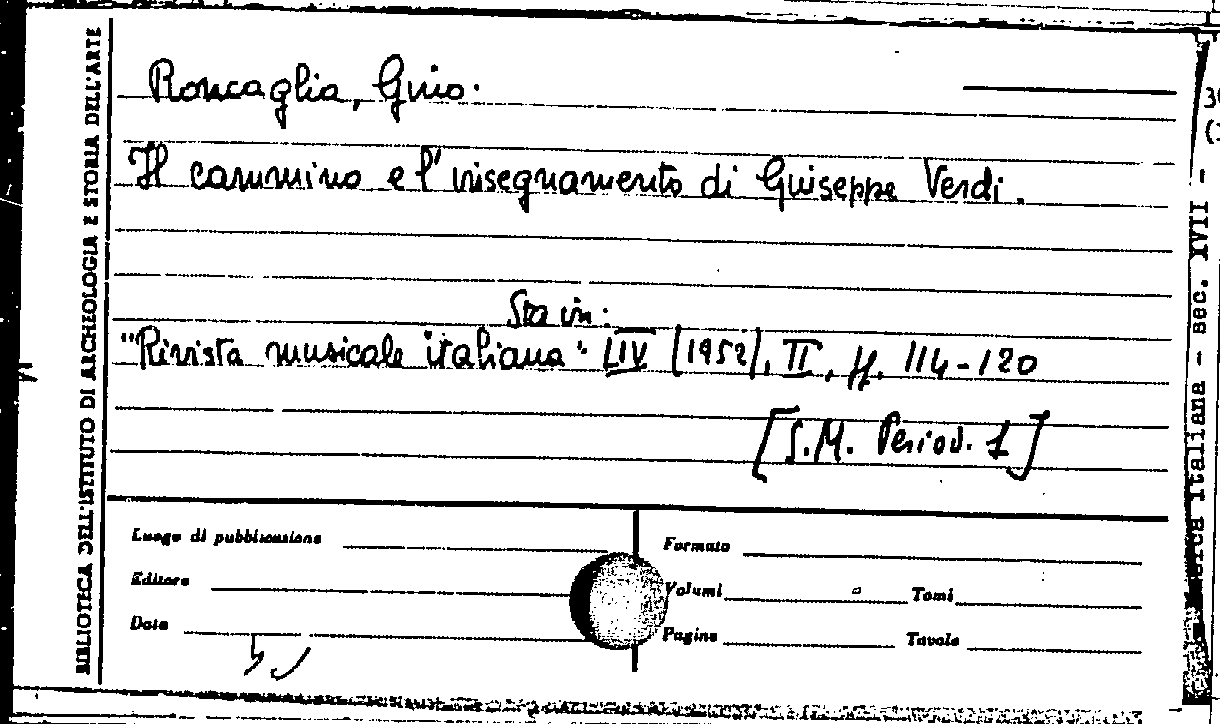 BIBLIOTECA DELL'ISTITUTO DI ARCHEOLOGIA E STORIA DELL'ARTE
Roncaglia, Gino.
Il cammino e l'insegnamento di Giuseppe Verdi.
Sta in:
"Rivista musicale italiana" LIV (1952), II, pp. 114-120
[S.M. Period. 1]
Luogo di pubblicazione
Formato
Editore
Volumi
Tomi
Data
Pagine
Tavole
italiana - sec. XVII -